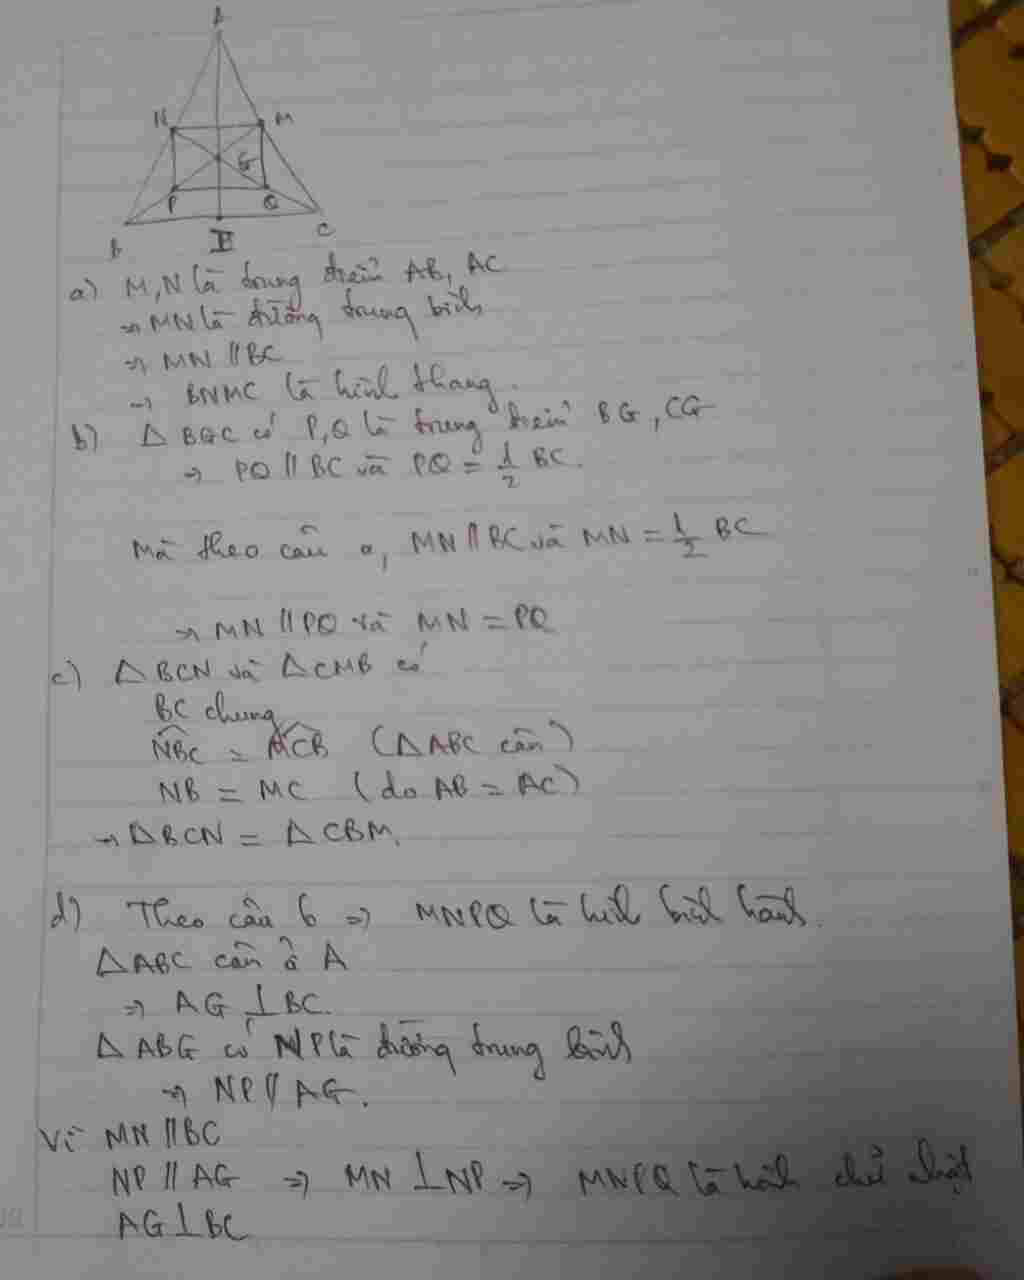 A
N
M
G
P
Q
B
E
C
a) M, N là trung điểm AB, AC
→ MN là đường trung bình
→ MN // BC
→ BNMC là hình thang.
b) △ BGC có P, Q là trung điểm BG, CG
→ PQ // BC và PQ = 1/2 BC.
Mà theo câu a, MN // BC và MN = 1/2 BC
→ MN // PQ và MN = PQ
c) △ BCN và △ CMB có
BC chung
NBC = MCB (△ ABC cân)
NB = MC (do AB = AC)
→ △BCN = △CBM.
d) Theo câu b => MNPQ là hình bình hành.
△ABC cân ở A
=> AG ⊥ BC.
△ ABG có NP là đường trung bình
→ NP // AG.
Vì MN // BC
NP // AG => MN ⊥ NP => MNPQ là hình chữ nhật
AG ⊥ BC